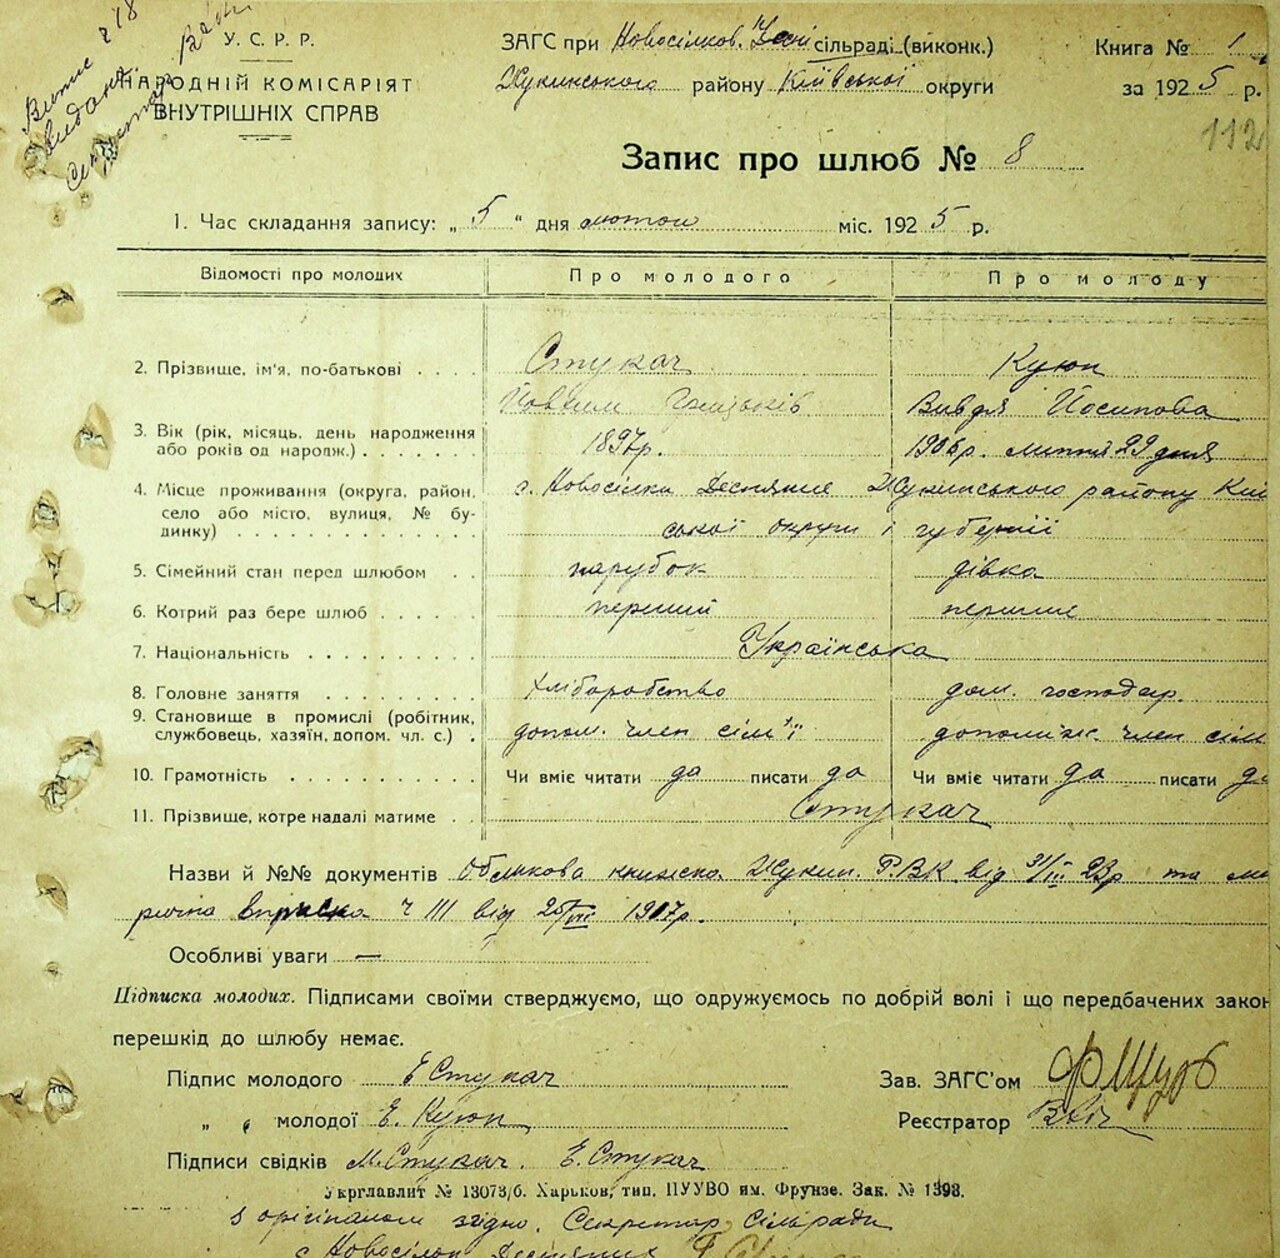 У. С. Р. Р.
НАРОДНІЙ КОМІСАРІЯТ
ВНУТРІШНІХ СПРАВ
ЗАГС при Новосілков. сільраді (виконк.)
Жукинського району Київської округи
Книга № 1
за 1925 р.
112
Запис про шлюб № 8
1. Час складання запису: „5“ дня лютого міс. 1925 р.
Відомості про молодих Про молодого Про молоду
2. Прізвище, ім'я, по-батькові . . . . Стукач Куюн
Йосипова
3. Вік (рік, місяць, день народження 1897р. 1906р. липня 29 дня
або років од народж.) . . . . . . .
4. Місце проживання (округа, район, с. Новосілки Деснянські Жукинського району Киї
село або місто, вулиця, № бу- ської округи і губернії
динку) . . . . . . . . . . . . . .
5. Сімейний стан перед шлюбом . . парубок дівка
6. Котрий раз бере шлюб . . . . . . перший перший
7. Національність . . . . . . . . . . Українська
8. Головне заняття . . . . . . . . . хліборобство дом. господар.
9. Становище в промислі (робітник, допом. член сім'ї допоміж. член сім
службовець, хазяїн, допом. чл. с.) .
10. Грамотність . . . . . . . . . . . Чи вміє читати да писати да Чи вміє читати да писати да
11. Прізвище, котре надалі матиме . . Стукач
Назви й №№ документів Облікова книжка Жукин. Р.В.К. від 31/III 23р та ме
рична вписка ч III від 25/VII 1907р.
Особливі уваги —
Підписка молодих. Підписами своїми стверджуємо, що одружуємось по добрій волі і що передбачених закон
перешкід до шлюбу немає.
Підпис молодого Є Стукач Зав. ЗАГС'ом
„ „ молодої Є. Куюн Реєстратор
Підписи свідків М. Стукач. Є. Стукач
Укрглавлит № 13073/б. Харьков, тип. ПУУВО им. Фрунзе. Зак. № 1393.
З орігіналом згідно. Секретар сільради
с Новосілок Деснянських